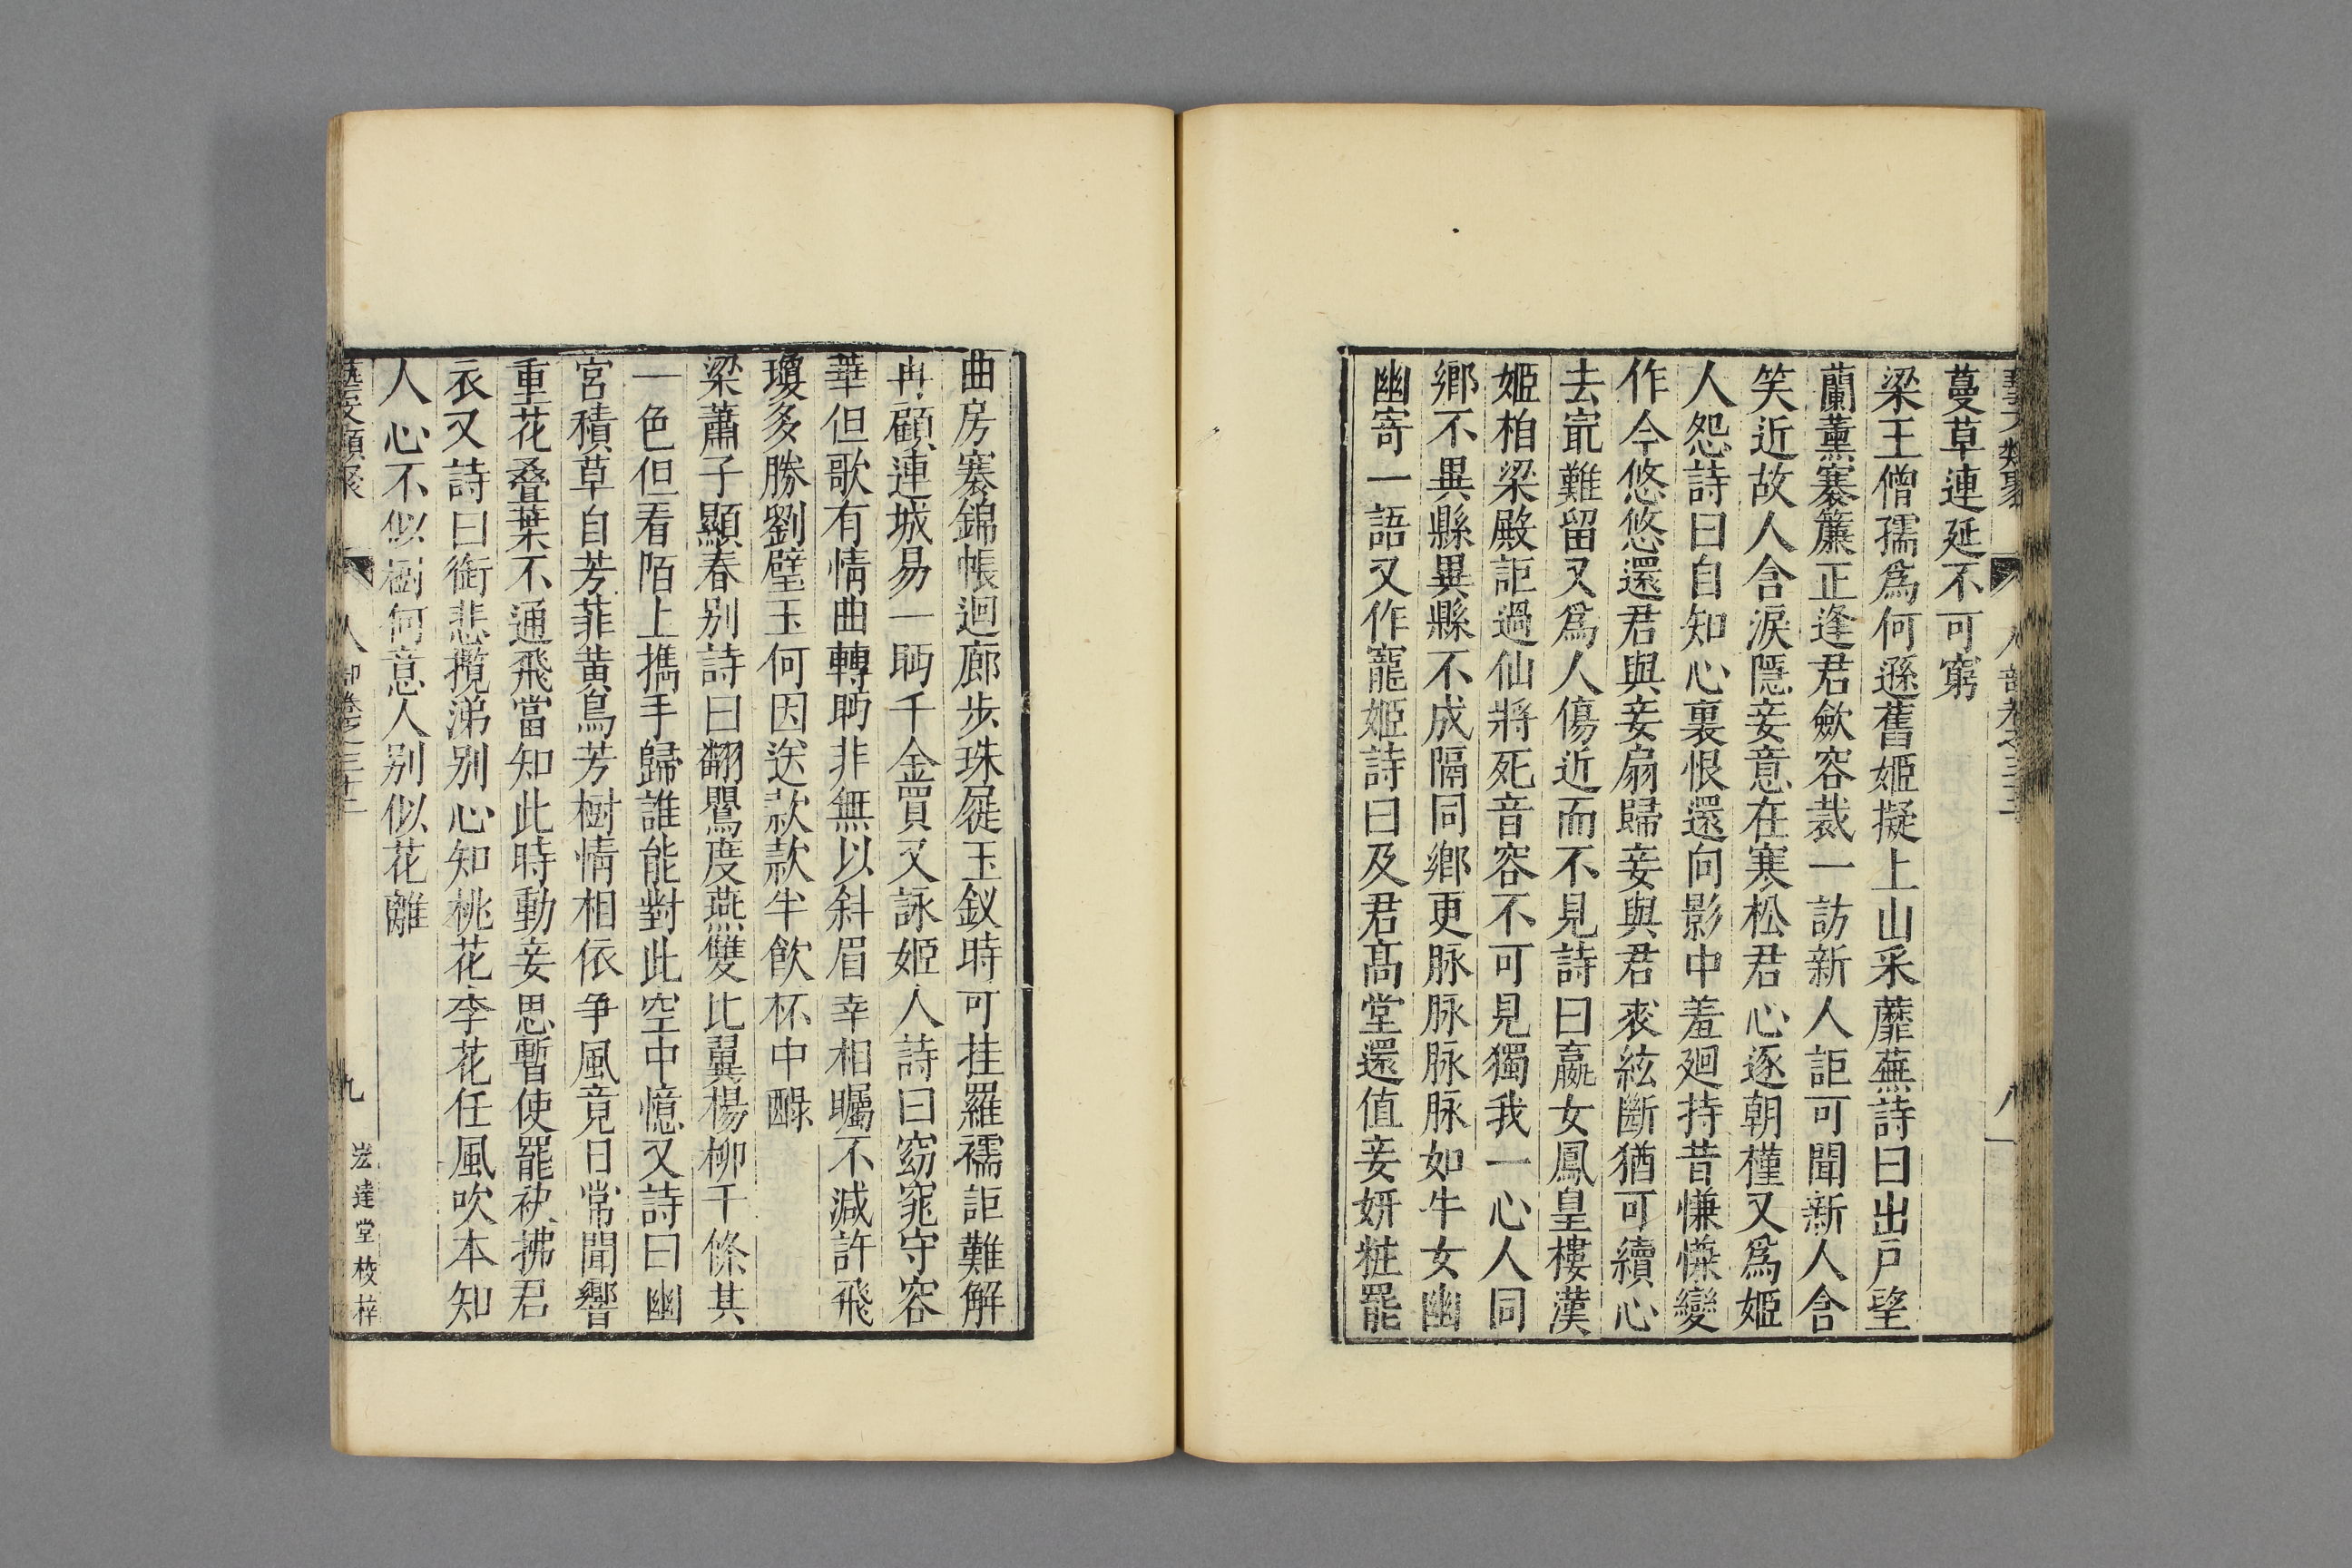 蔓草連延不可窮
梁王僧孺爲何遜舊姬擬上山采蘼蕪詩曰出戸望
蘭薰褰簾正逢君歛容裁一訪新人詎可聞新人含
笑近故人含淚隱妾意在寒松君心逐朝槿又爲姬
人怨詩曰自知心裏恨還向影中羞廻持昔慊慊變
作今悠悠還君與妾扇歸妾與君裘絃斷猶可續心
去㝡難留又爲人傷近而不見詩曰嬴女鳳皇樓漢
姬栢梁殿詎過仙將死音容不可見獨我一心人同
鄉不異縣異縣不成隔同鄉更脉脉脉脉如牛女幽
幽寄一語又作寵姬詩曰及君髙堂還值妾妍粧罷
曲房褰錦帳迴廊步珠屣玉釵時可挂羅襦詎難解
再顧連城易一眄千金買又詠姬人詩曰窈窕守容
華但歌有情曲轉眄非無以斜眉幸相矚不減許飛
瓊多勝劉璧玉何因送款款半飲杯中醁
梁蕭子顯春别詩曰翻鸎度燕雙比翼楊柳千條共
一色但看陌上擕手歸誰能對此空中憶又詩曰幽
宮積草自芳菲黄鳥芳樹情相依爭風竟日常聞響
重花叠葉不通飛當知此時動妾思暫使罷袂拂君
衣又詩曰銜悲攬涕别心知桃花李花任風吹本知
人心不似樹何意人别似花離
藝文類聚 人部卷之三十二 九 宏達堂校梓